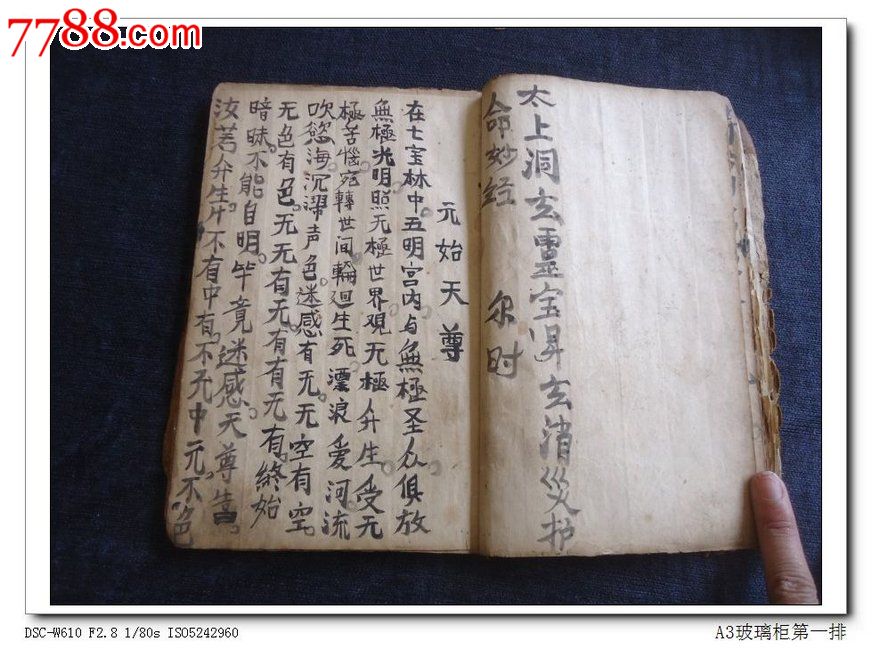 7788.com
太上洞玄靈宝昇玄消災护
命妙经 尔时
元始天尊
在七宝林中。五明宫内与無極圣众。俱放
無極光明。照无極世界。观无極众生。受无
極苦惱。宛轉世间。輪迴生死。漂浪愛河。流
吹慾海。沉滯声色。迷惑有无。无空有空。
无色有色。无无有无。有有无有。終始
暗昧。不能自明。毕竟迷惑。天尊告
汝等众生。从不有中有。不无中无。不色
DSC-W610 F2.8 1/80s ISO5242960
A3玻璃柜第一排